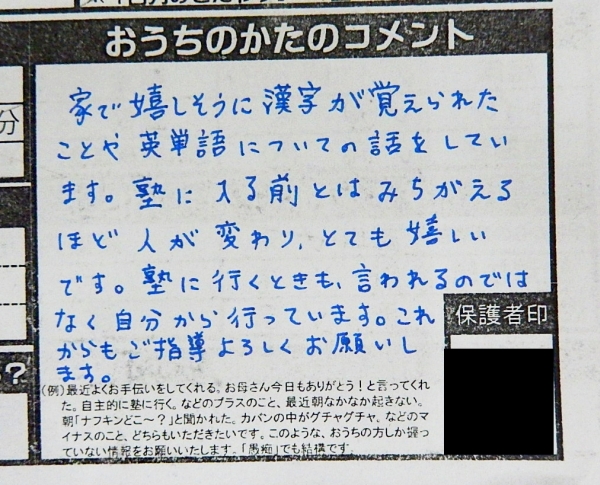 おうちのかたのコメント
分
家で嬉しそうに漢字が覚えられた
ことや英単語についての話をしてい
ます。塾に入る前とはみちがえる
ほど人が変わり、とても嬉しい
です。塾に行くときも、言われるのでは
なく自分から行っています。これ
からもご指導よろしくお願いし
ます。
保護者印
?
(例)最近よくお手伝いをしてくれる。お母さん今日もありがとう!と言ってくれ
た。自主的に塾に行く。などのプラスのこと、最近朝なかなか起きない。
朝「ナフキンどこ〜?」と聞かれた。カバンの中がグチャグチャ、などのマ
イナスのこと、どちらもいただきたいです。このような、おうちの方しか握っ
ていない情報をお願いいたします。「愚痴」でも結構です。